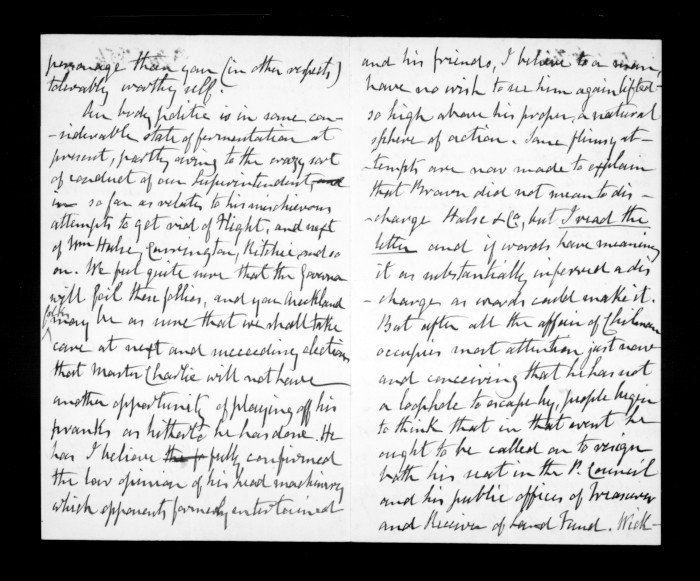 personage than your (in other respects)
tolerably worthy self.
Our body politic is in some con-
-siderable state of fermentation at
present, partly owing to the crazy sort
of conduct of our Superintendent, and
in so far as relates to his mischievous
attempts to get rid of Flight, and next
of Wm Halse, Currington, Ritchie and so
on. We feel quite sure that the Governor
will foil these follies, and you Auckland
folks may be as sure that we shall take
care at next and succeeding elections
that Master Charlie will not have
another opportunity of playing off his
pranks as hitherto he has done. He
has I believe fully confirmed
the low opinion of his head machinery
which opponents formerly entertained
and his friends, I believe to a man,
have no wish to see him again lifted
so high above his proper, & natural
sphere of action. Some flimsy at-
-tempts are now made to explain
that Brown did not mean to dis-
-charge Halse & Co, but I read the
letter and if words have meaning
it as substantially inferred a dis
-charge as words could make it.
But after all the affair of Chilman
occupies most attention just now
and conceiving that he has not
a loophole to escape by, people begin
to think that in that event he
ought to be called on to resign
both his seat in the P. Council
and his public offices of Treasurer
and Receiver of Land Fund. Wick-